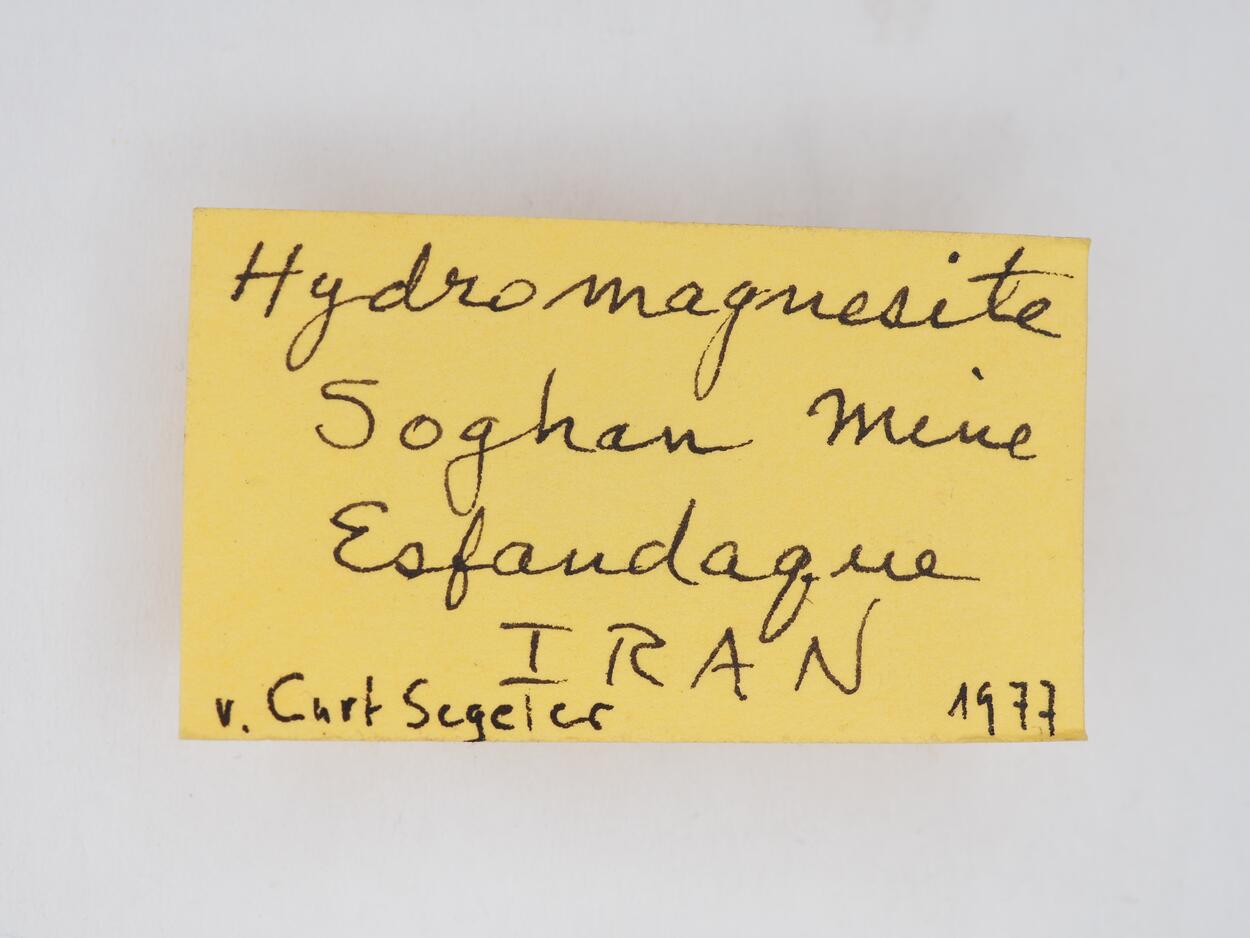 Hydromagnesite
Soghan Mine
Esfandaque
IRAN
v. Curt Segeler 1977